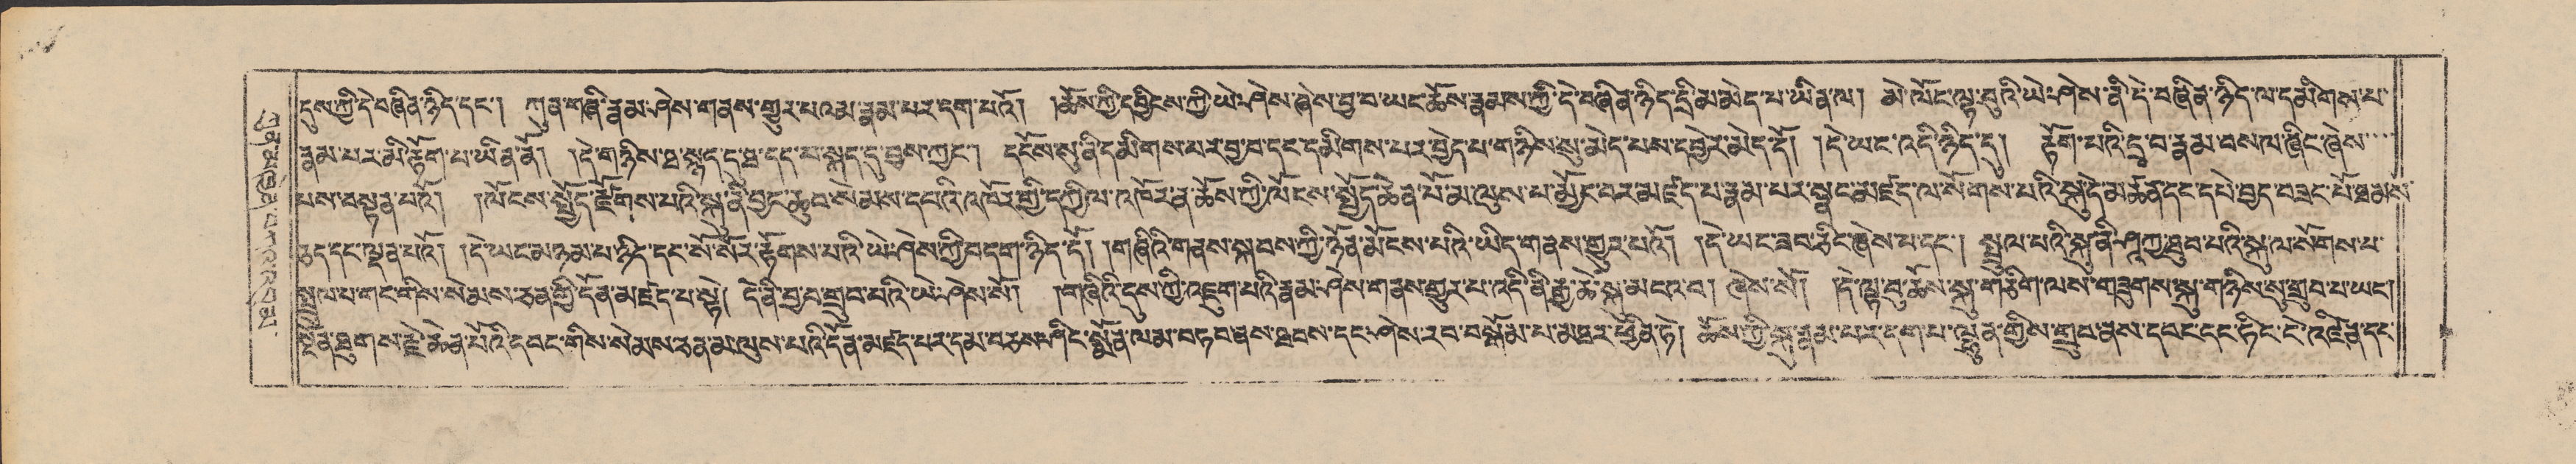 དུས་ཀྱི་དེ་བཞིན་ཉིད་དང་། ཀུན་གཞི་རྣམ་ཤེས་གནས་གྱུར་པའམ་རྣམ་པར་དག་པའོ། །ཆོས་ཀྱི་དབྱིངས་ཀྱི་ཡེ་ཤེས་ཞེས་བྱ་བ་ཡང་ཆོས་རྣམས་ཀྱི་དེ་བཞིན་ཉིད་དྲི་མ་མེད་པ་ཡིན་ལ། མེ་ལོང་ལྟ་བུའི་ཡེ་ཤེས་ནི་དེ་བཞིན་ཉིད་ལ་དམིགས་པ་
རྣམ་པར་མི་རྟོག་པ་ཡིན་ནོ། །དེ་གཉིས་ཐ་སྙད་དུ་ཐ་དད་པ་སྐད་དུ་བྱས་ཀྱང་། དངོས་སུ་ནི་དམིགས་པར་བྱ་བ་དང་དམིགས་པར་བྱེད་པ་གཉིས་སུ་མེད་པས་དབྱེར་མེད་དོ། །དེ་ཡང་འདི་ཉིད་དུ། རྟོག་པའི་དྲྭ་བ་རྣམ་བསལ་ཞིང་ཞེས་
པས་བསྟན་པའོ། །ལོངས་སྤྱོད་རྫོགས་པའི་སྐུ་ནི་བྱང་ཆུབ་སེམས་དཔའི་འཁོར་གྱི་དཀྱིལ་འཁོར་ན་ཆོས་ཀྱི་ལོངས་སྤྱོད་ཆེན་པོ་མ་ལུས་པ་མྱོང་བར་མཛད་པ་རྣམ་པར་སྣང་མཛད་ལ་སོགས་པའི་སྐུ་དེ་མཚན་དང་དཔེ་བྱད་བཟང་པོ་ཐམས་
ཅད་དང་ལྡན་པའོ། །དེ་ཡང་མཉམ་པ་ཉིད་དང་སོ་སོར་རྟོགས་པའི་ཡེ་ཤེས་ཀྱི་བདག་ཉིད་དོ། །གཞིའི་གནས་སྐབས་ཀྱི་ཉོན་མོངས་པའི་ཡིད་གནས་གྱུར་པའོ། །དེ་ཡང་ཟབ་ཅིང་ཞེས་པ་དང་། སྤྲུལ་པའི་སྐུ་ནི་ཤཱཀྱ་ཐུབ་པའི་སྐུ་ལ་སོགས་པ་
སྤྲུལ་པ་གང་གིས་སེམས་ཅན་གྱི་དོན་མཛད་པ་སྟེ། དེ་ནི་བྱ་བ་གྲུབ་པའི་ཡེ་ཤེས་སོ། །གཞིའི་དུས་ཀྱི་འཇུག་པའི་རྣམ་ཤེས་གནས་གྱུར་པ་འདི་ནི་རྒྱ་ཆེ་སྐུ་མངའ་བ། ཞེས་སོ། །དེ་ལྟ་བུ་ཆོས་སྐུ་གཅིག་ལས་གཟུགས་སྐུ་གཉིས་སུ་གྲུབ་པ་ཡང་།
སྔོན་ཐུགས་རྗེ་ཆེན་པོའི་དབང་གིས་སེམས་ཅན་མ་ལུས་པའི་དོན་མཛད་པར་དམ་བཅས་ཤིང་སྨོན་ལམ་བཏབ་ནས་ཐབས་དང་ཤེས་རབ་བསྒོམ་པ་མཐར་ཕྱིན་ཏེ། ཆོས་ཀྱི་སྐུ་རྣམ་པར་དག་པ་ལྷུན་གྱིས་གྲུབ་ནས་དབང་དང་ཏིང་ངེ་འཛིན་དང་